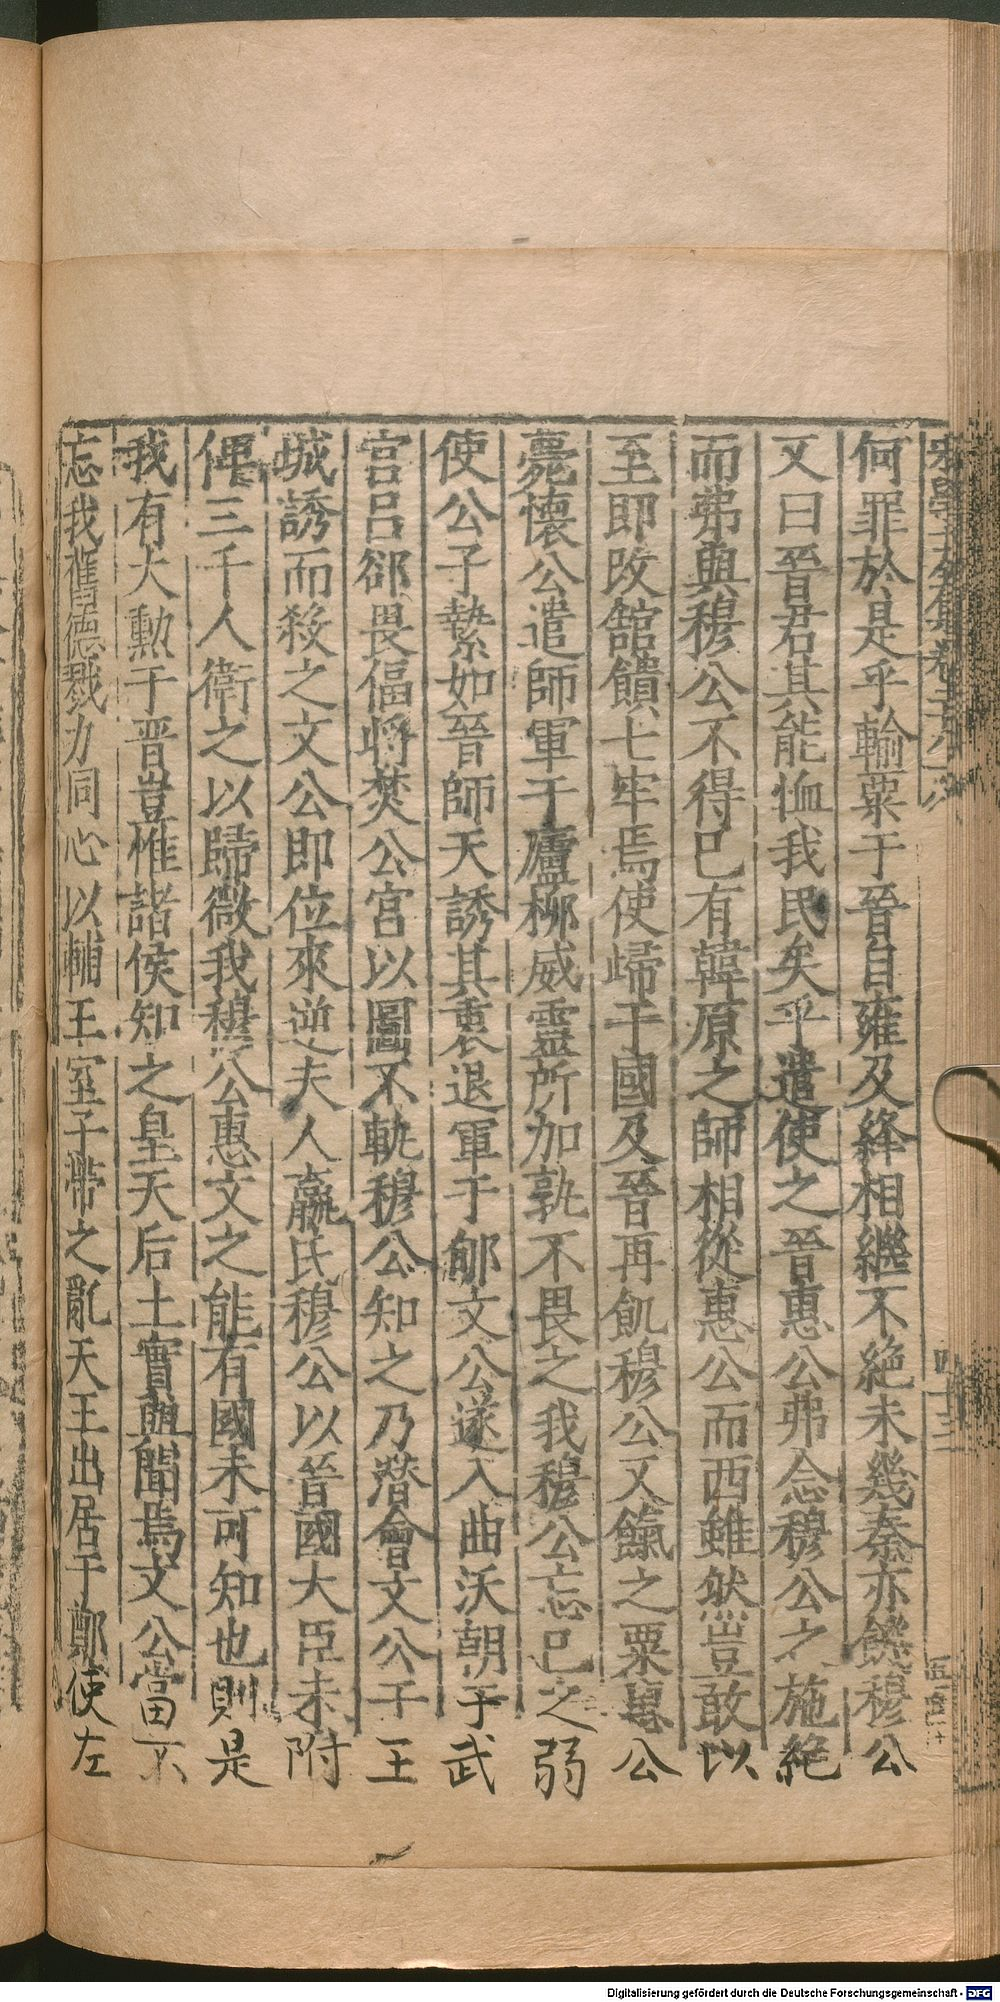 宋學士文集卷第
四十三
何罪於是乎輸粟于晉自雍及絳相繼不絶未幾秦亦饑穆公
又曰晉君其能恤我民矣乎遣使之晉惠公弗念穆公之施絶
而弗與穆公不得已有韓原之師相從惠公而西雖然豈敢以
至即改舘饋七牢焉使歸于國及晉再飢穆公又餼之粟惠公
薨懷公遣師軍于廬柳威靈所加孰不畏之我穆公忘已之弱
使公子縶如晉師天誘其衷退軍于郇文公遂入曲沃朝于武
宮呂郤畏偪將焚公宮以圖不軌穆公知之乃潜會文公于王
城誘而殺之文公即位來逆夫人嬴氏穆公以晉國大臣未附
俾三千人衛之以歸微我穆公惠文之能有國未可知也則是
我有大勲于晋豈惟諸侯知之皇天后土實與聞焉文公當不
忘我舊德戮力同心以輔王室子帶之亂天王出居于鄭使左
Digitalisierung gefördert durch die Deutsche Forschungsgemeinschaft - DFG